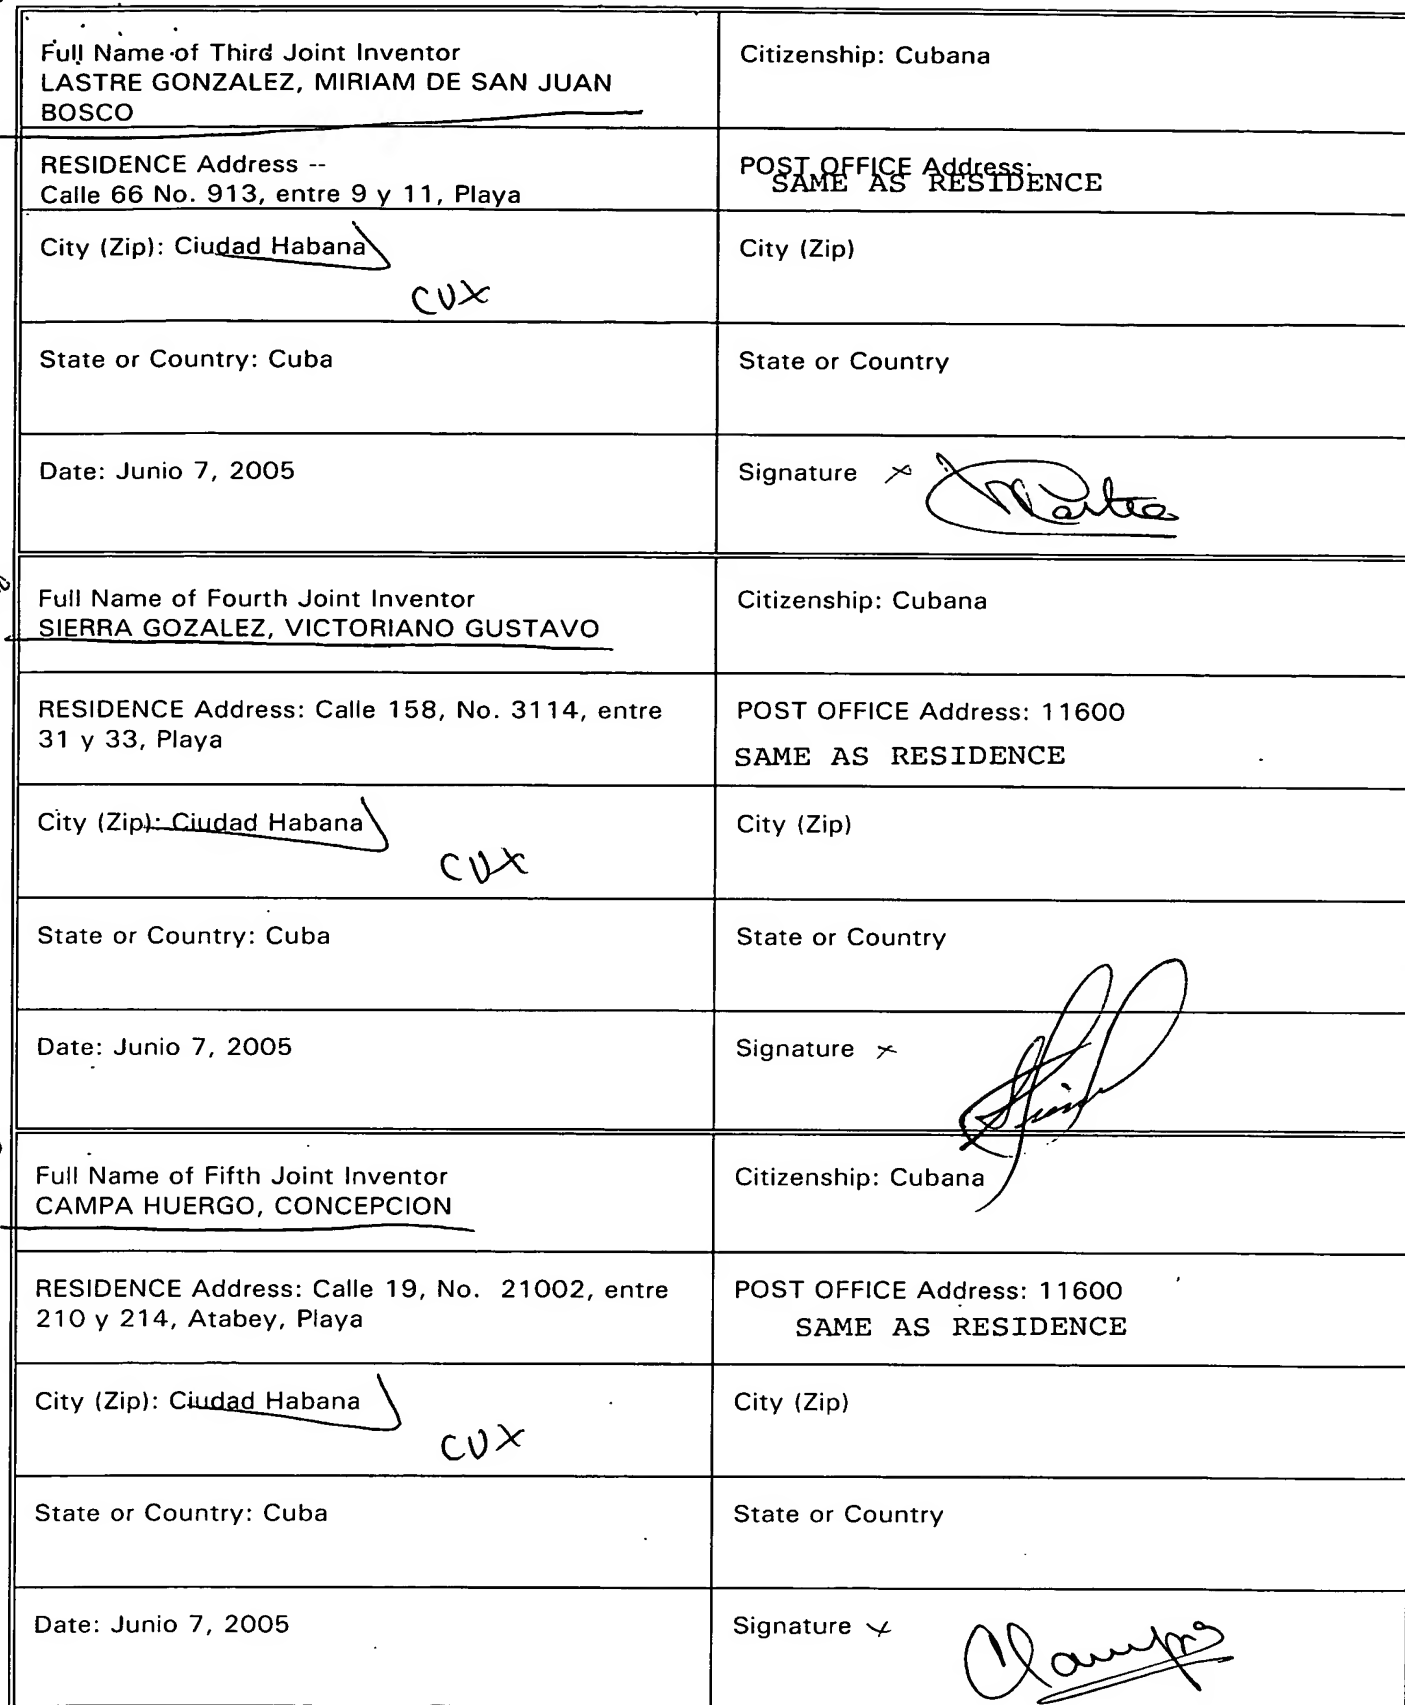 Full Name of Third Joint Inventor
LASTRE GONZALEZ, MIRIAM DE SAN JUAN
BOSCO
Citizenship: Cubana
RESIDENCE Address --
Calle 66 No. 913, entre 9 y 11, Playa
POST OFFICE Address:
SAME AS RESIDENCE
City (Zip): Ciudad Habana
CUX
City (Zip)
State or Country: Cuba
State or Country
Date: Junio 7, 2005
Signature x
Full Name of Fourth Joint Inventor
SIERRA GOZALEZ, VICTORIANO GUSTAVO
Citizenship: Cubana
RESIDENCE Address: Calle 158, No. 3114, entre
31 y 33, Playa
POST OFFICE Address: 11600
SAME AS RESIDENCE
City (Zip): Ciudad Habana
CUX
City (Zip)
State or Country: Cuba
State or Country
Date: Junio 7, 2005
Signature x
Full Name of Fifth Joint Inventor
CAMPA HUERGO, CONCEPCION
Citizenship: Cubana
RESIDENCE Address: Calle 19, No. 21002, entre
210 y 214, Atabey, Playa
POST OFFICE Address: 11600
SAME AS RESIDENCE
City (Zip): Ciudad Habana
CUX
City (Zip)
State or Country: Cuba
State or Country
Date: Junio 7, 2005
Signature x